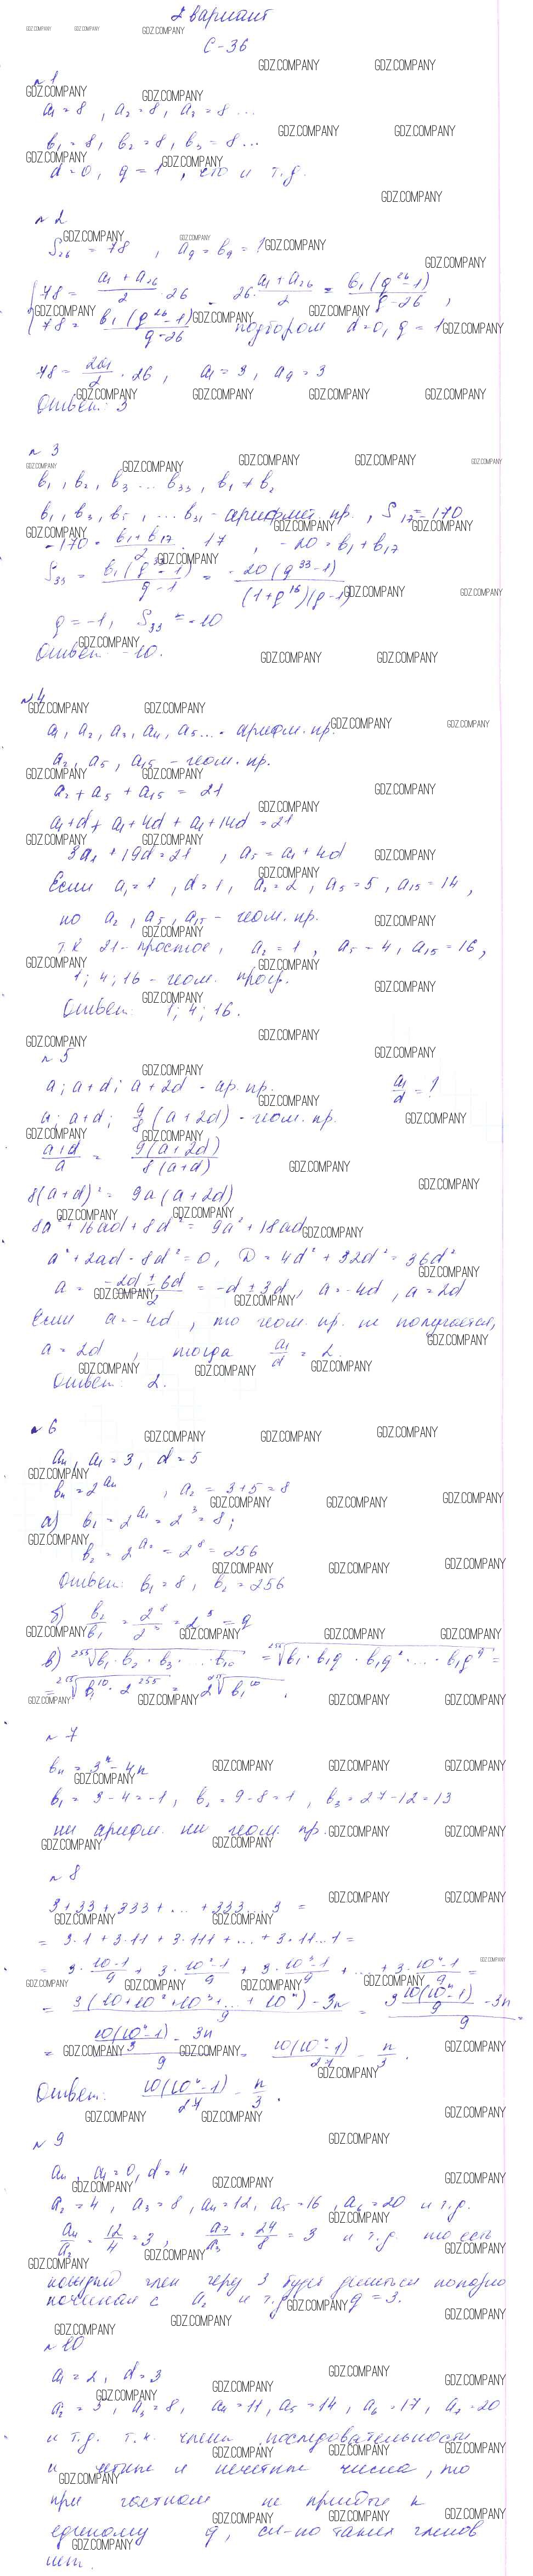 2 вариант
С-36
№1
a₁ = 8, a₂ = 8, a₃ = 8 ...
b₁ = 8, b₂ = 8, b₃ = 8 ...
d = 0, q = 1, и т.д.
№2
S₂₆ = 78, a₉ = b₉ = ?
78 = (a₁ + a₂₆)/2 · 26   26 · (a₁ + a₂₆)/2 = b₁(q²⁶ - 1)/(q - 26),
78 = b₁(q²⁶ - 1)/(q - 26)   подбором d = 0, q = 1
78 = 2a₁/2 · 26, a₁ = 3, a₉ = 3
Ответ: 3
№3
b₁, b₂, b₃ ... b₃₃, b₁ ≠ b₂
b₁, b₃, b₅, ... b₃₁ - арифмет. пр., S₁₇ = -170
-170 = (b₁ + b₁₇)/2 · 17, -20 = b₁ + b₁₇
S₃₃ = b₁(q³³ - 1)/(q - 1) = -20(q³³ - 1)/((1 + q¹⁶)(q - 1))
q = -1, S₃₃ = -10
Ответ: -10.
№4
a₁, a₂, a₃, a₄, a₅ ... - арифм. пр.
a₂, a₅, a₁₅ - геом. пр.
a₂ + a₅ + a₁₅ = 21
a₁ + d + a₁ + 4d + a₁ + 14d = 21
3a₁ + 19d = 21, a₅ = a₁ + 4d
Если a₁ = 1, d = 1, a₂ = 2, a₅ = 5, a₁₅ = 14,
но a₂, a₅, a₁₅ - геом. пр.
т.к 21 - простое, a₂ = 1, a₅ = 4, a₁₅ = 16,
1; 4; 16 - геом. прогр.
Ответ: 1; 4; 16.
№5
a; a+d; a+2d - ар. пр.   a₁/d = ?
a; a+d; 9/8 (a+2d) - геом. пр.
(a+d)/a = 9(a+2d)/8(a+d)
8(a+d)² = 9a(a+2d)
8a² + 16ad + 8d² = 9a² + 18ad
a² + 2ad - 8d² = 0, D = 4d² + 32d² = 36d²
a = (-2d ± 6d)/2 = -d ± 3d, a = -4d, a = 2d
Если a = -4d, то геом. пр. не получается,
a = 2d, тогда a₁/d = 2.
Ответ: 2.
№6
aₙ, a₁ = 3, d = 5
bₙ = 2^aₙ, a₂ = 3 + 5 = 8
а) b₁ = 2^a₁ = 2³ = 8;
b₂ = 2^a₂ = 2⁸ = 256
Ответ: b₁ = 8, b₂ = 256
б) b₂/b₁ = 2⁸/2³ = 2⁵ = q
в) ²⁵⁵√(b₁ · b₂ · b₃ · ... b₁₀) = ²⁵⁵√(b₁ · b₁q · b₁q² · ... · b₁q⁹) =
= ²⁵⁵√(b₁¹⁰ · 2²⁵⁵) = 2 ²⁵⁵√b₁¹⁰.
№7
bₙ = 3ⁿ - 4n
b₁ = 3 - 4 = -1, b₂ = 9 - 8 = 1, b₃ = 27 - 12 = 13
ни арифм. ни геом. пр.
№8
3 + 33 + 333 + ... + 333...3 =
= 3·1 + 3·11 + 3·111 + ... + 3·11...1 =
= 3·(10-1)/9 + 3·(10²-1)/9 + 3·(10³-1)/9 + ... + 3·(10ⁿ-1)/9 =
= (3(10 + 10² + 10³ + ... + 10ⁿ) - 3n)/9 = (3·10(10ⁿ-1)/9 - 3n)/9 =
= (10(10ⁿ-1)/3 - 3n)/9 = 10(10ⁿ-1)/27 - n/3.
Ответ: 10(10ⁿ-1)/27 - n/3.
№9
aₙ, a₁ = 0, d = 4
a₂ = 4, a₃ = 8, a₄ = 12, a₅ = 16, a₆ = 20 и т.д.
a₄/a₂ = 12/4 = 3, a₇/a₃ = 24/8 = 3 и т.д. то есть
каждый член через 3 будет делиться попарно
начиная с a₂ и т.д. q = 3.
№10
a₁ = 2, d = 3
a₂ = 5, a₃ = 8, a₄ = 11, a₅ = 14, a₆ = 17, a₇ = 20
и т.д. т.к. члены последовательности
и четные и нечетные числа, то
при частном не придём к
единому q, сл-но таких членов
нет.
GDZ.COMPANY